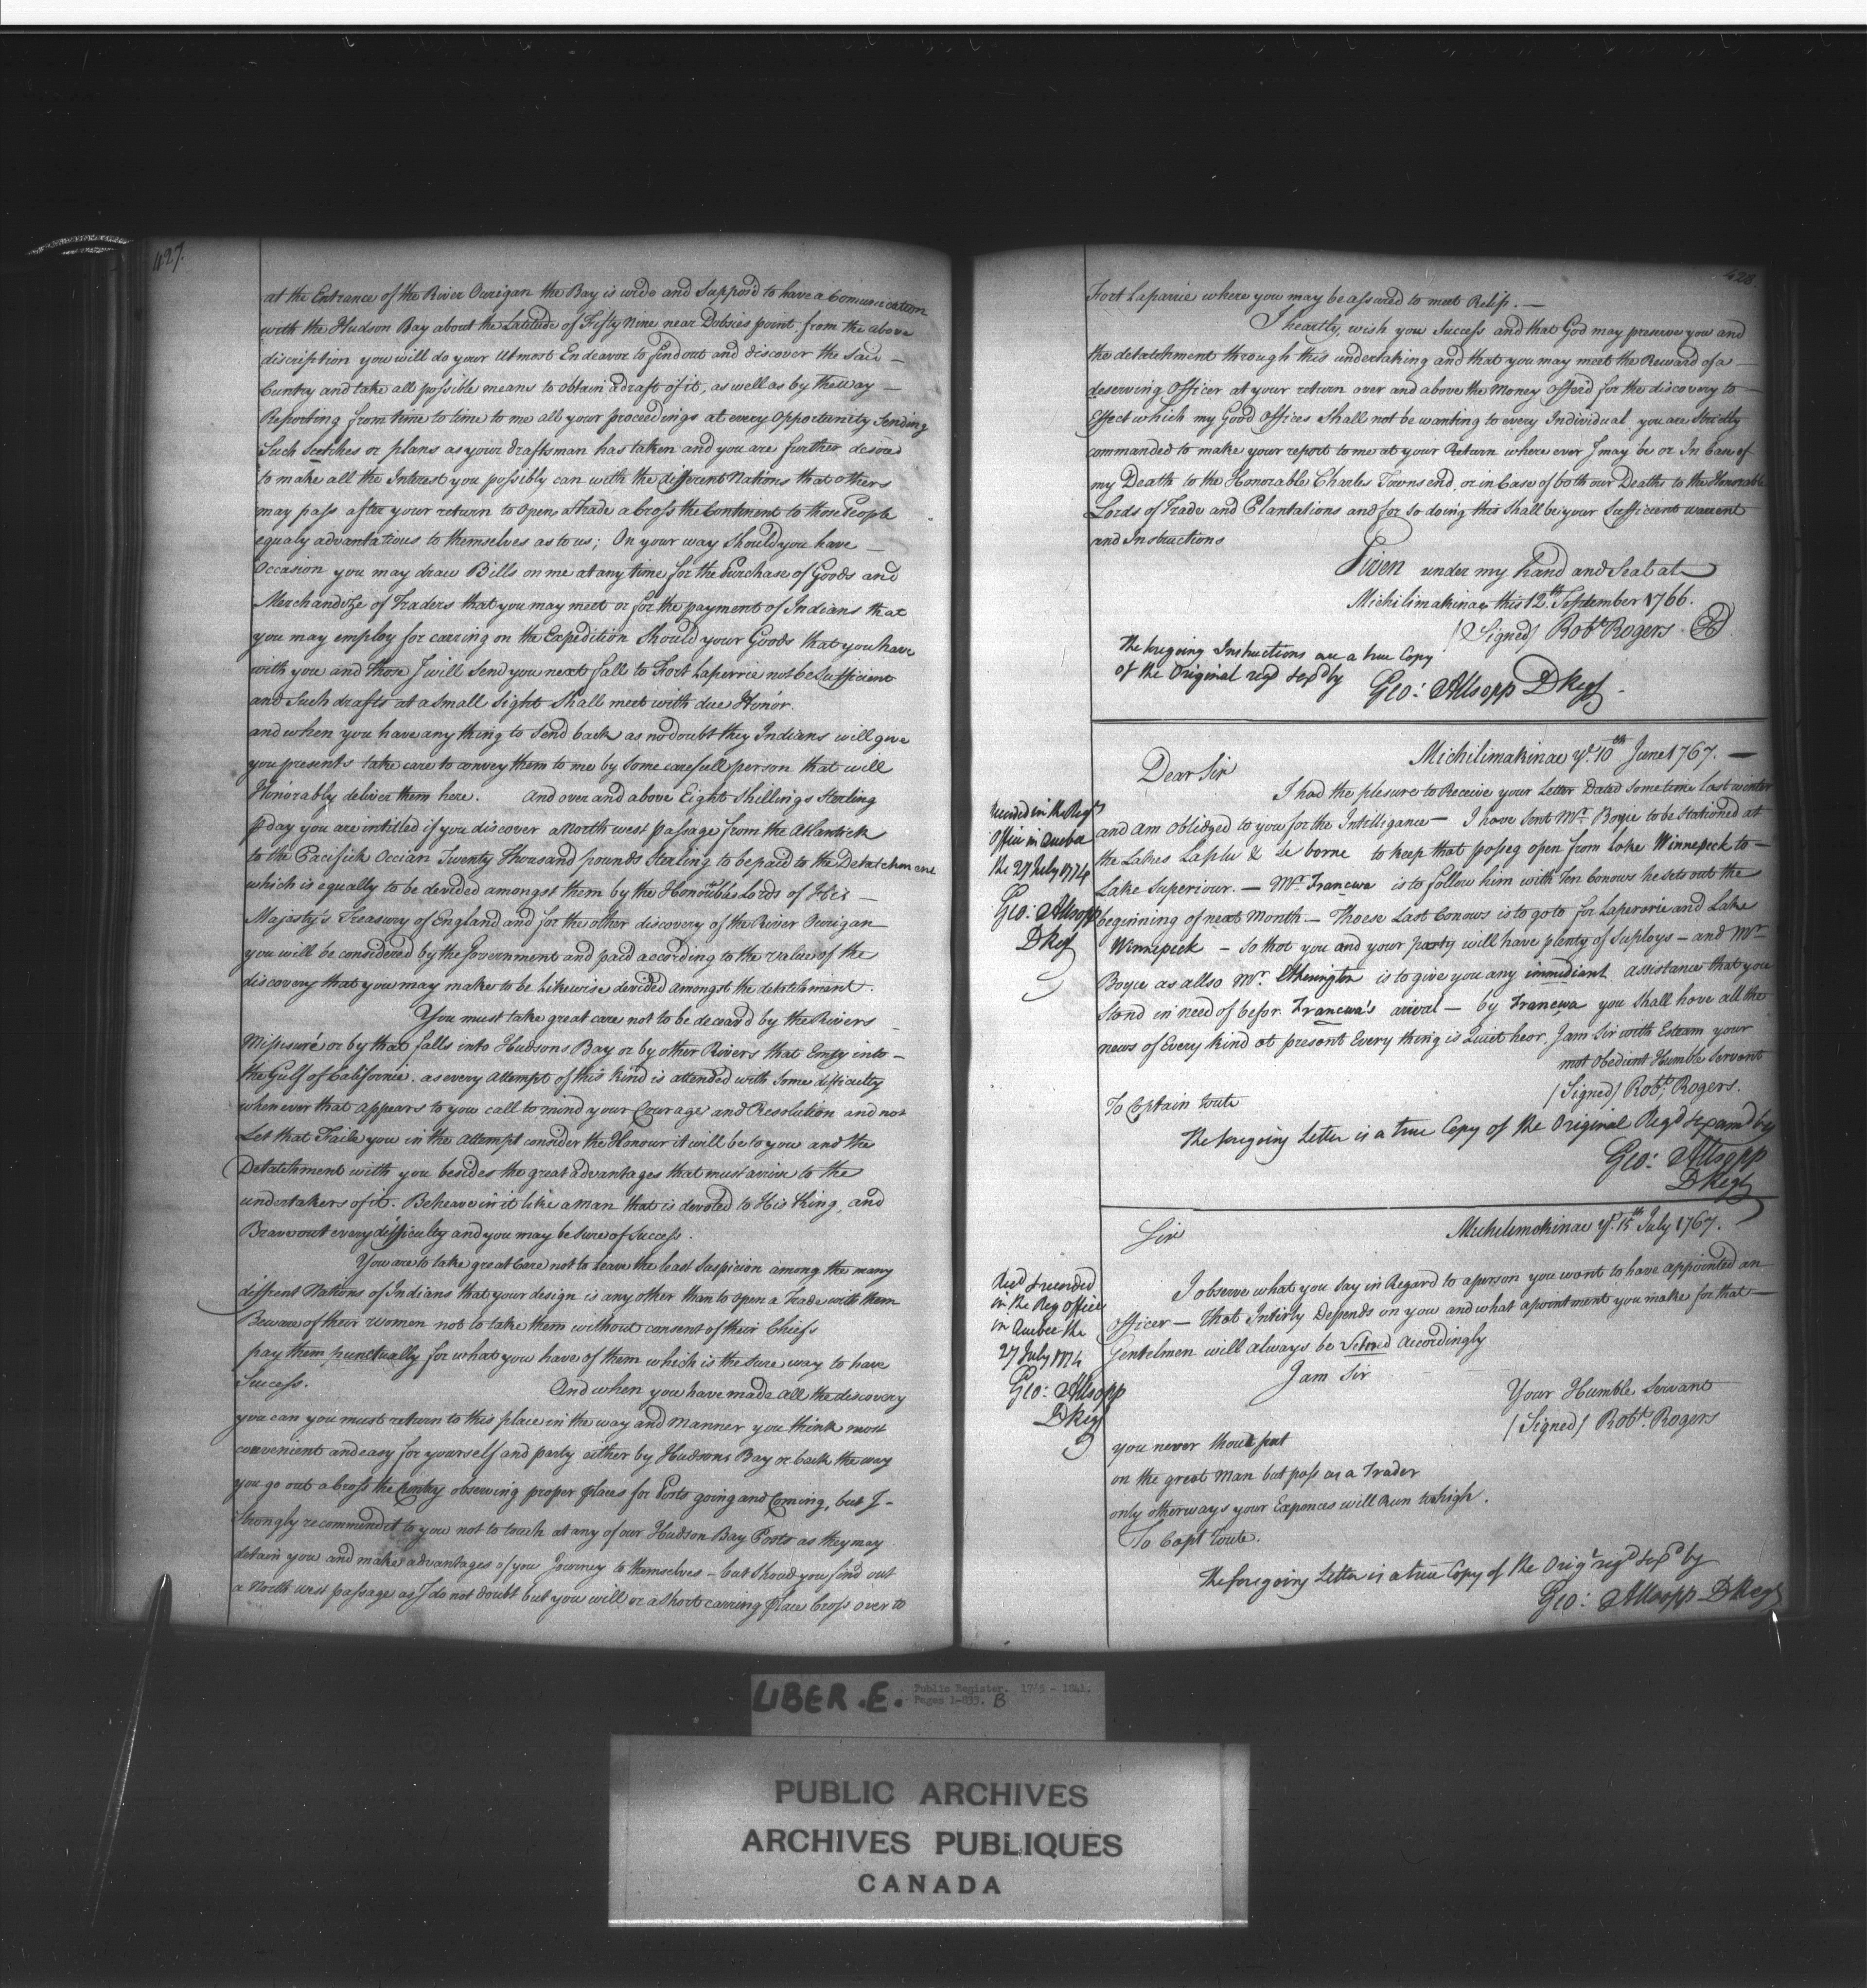 427.
at the Entrance of the River Ourigan the Bay is wide and Suppos'd to have a Comunication
with the Hudson Bay about the Latitude of Fifty Nine near Dobsies point, from the above
discription you will do your Utmost Endeavor to find out and discover the said —
Cuntry and take all possible means to obtain a draft of it, as well as by the way —
Reporting from time to time to me all your proceedings at every Opportunity Sending
Such Scetches or plans as your draftsman has taken and you are further desired
to make all the Interest you possibly can with the different Nations that others
may pass after your return to open a Trade a bross the Continent to those People
equaly advantatious to themselves as to us; On your way Should you have —
Occasion you may draw Bills on me at any time for the Purchase of Goods and
Merchandize of Traders that you may meet or for the payment of Indians that
you may employ for carring on the Expedition Should your Goods that you have
with you and those I will Send you next fall to Fort Laperrie not be Sufficient
and Such drafts at a small Sight Shall meet with due Honor.
and when you have any thing to Send back as no doubt they Indians will give
you presents take care to convey them to me by some carefull person that will
Honorably deliver them here. And over and above Eight Shillings Sterling
p day you are intitled if you discover a North west passage from the Atlantick
to the Pacifick Occian Twenty Thousand pounds Sterling to be paid to the Detatchment
which is equally to be devided amongst them by the Honourable Lords of His —
Majesty's Treasury of England and for the other discovery of the River Ourigan
you will be considered by the Government and paid according to the value of the
discovery that you may make to be Likewise devided amongst the detatchment.
You must take great care not to be deceav'd by the Rivers
Misisuré or by that falls into Hudsons Bay or by other Rivers that Emty into —
the Gulf of California. as every attempt of this kind is attended with Some difficulty
when ever that appears to you call to mind your Courage and Resolution and not
Let that Faile you in the attempt consider the Honour it will be to you and the
Detatchment with you besides the great advantages that must arrive to the
undertakers of it. Beheave in it like a Man that is devoted to His King, and
Brave out every difficulty and you may be Sure of Success.
You are to take great Care not to Leave the least Suspicion among the many
diffrent Nations of Indians that your design is any other than to open a Trade with them
Beware of their women not to take them without consent of their Chiefs
pay them punctually for what you have of them which is the Sure way to have
Success. And when you have made all the discovery
you can you must return to this place in the way and Manner you think most
convenient and easy for yourself and party either by Hudsons Bay or back the way
you go out a bross the Contry observing proper places for Posts going and Coming, but I —
Strongly recommend it to you not to touch at any of our Hudson Bay Posts as they may
detain you and make advantages of you Journey to themselves — but Shoud you find out
a North west passage as I do not doubt but you will or a Short carring place Cross over to
428
Fort Laparrie where you may be assured to meet Relif. —
I heartly, wish you Success and that God may preserve you and
the detatchment through this undertaking and that you may meet the Reward of a —
deserving Officer at your return over and above the Money Offer'd for the discovery to —
Effect which my Good Offices Shall not be wanting to every Individual you are Strictly
commanded to make your report to me at your Return where ever I may be or In Case of
my Death to the Honorable Charles Townsend, or in Case of both our Deaths to the Honorable
Lords of Trade and Plantations and for so doing this Shall be your Sufficient warrent
and Instructions
Given under my hand and Seal at
Michilimakinac this 12th September 1766.
(Signed) Robt Rogers.
The foregoing Instructions are a true Copy
of the Original regd & exd by
Geo: Allsopp D Regr
Michilimakinac ye. 10th June 1767. —
Dear Sir
I had the plesure to Receive your Letter Dated Sometime last winter
and am Oblidged to you for the Intilligance — I have Sent Mr. Boyie to be Stationed at
the Lakes Laplu & De borne to keep that posseg open from Lake Winnepeck to —
Lake Superiour. — Mr. Francwa is to follow him with Ten Conows he sets out the
beginning of next Month — Thoese Last Conows is to go to for Laperorie and Lake
Winnipeck — So that you and your party will have plenty of Suploys — and Mr
Boyce as allso Mr. Etherington is to give you any immediant assistance that you
Stand in need of befor Francwa's arival — by Francwa you Shall have all the
news of Every kind at present Every thing is Quiet hear. I am Sir with Esteam your
most Obedient Humble Servant
(Signed) Robt, Rogers.
To Captain Tute
The foregoing Letter is a true Copy of the Original Regd & examd by
Geo: Allsopp
D Regr
record in the Regrs
Office in Quebec
the 27 July 1774
Geo: Allsopp
D Regr
Michelemakinac ye. 15th July 1767.
Sir
I observe what you Say in Regard to a person you want to have appointed an
Officer — that Intirly Depends on you and what apointment you make for that —
Gentelmen will always be Seteed Accordingly
I am Sir
Your Humble Servant
(Signed) Robt. Rogers
you never thout put
on the great Man but pass as a Trader
only otherways your Expences will Run to high.
To Capt Tute.
The foregoing Letter is a true Copy of the Origl regd & exd by
Geo: Allsopp D Regr
Recd & recorded
in the Reg Office
in Quebec the
27 July 1774
Geo: Allsopp
D Regr
LIBER.E. Public Register. 1765 - 1841.
Pages 1-833. B
PUBLIC ARCHIVES
ARCHIVES PUBLIQUES
CANADA